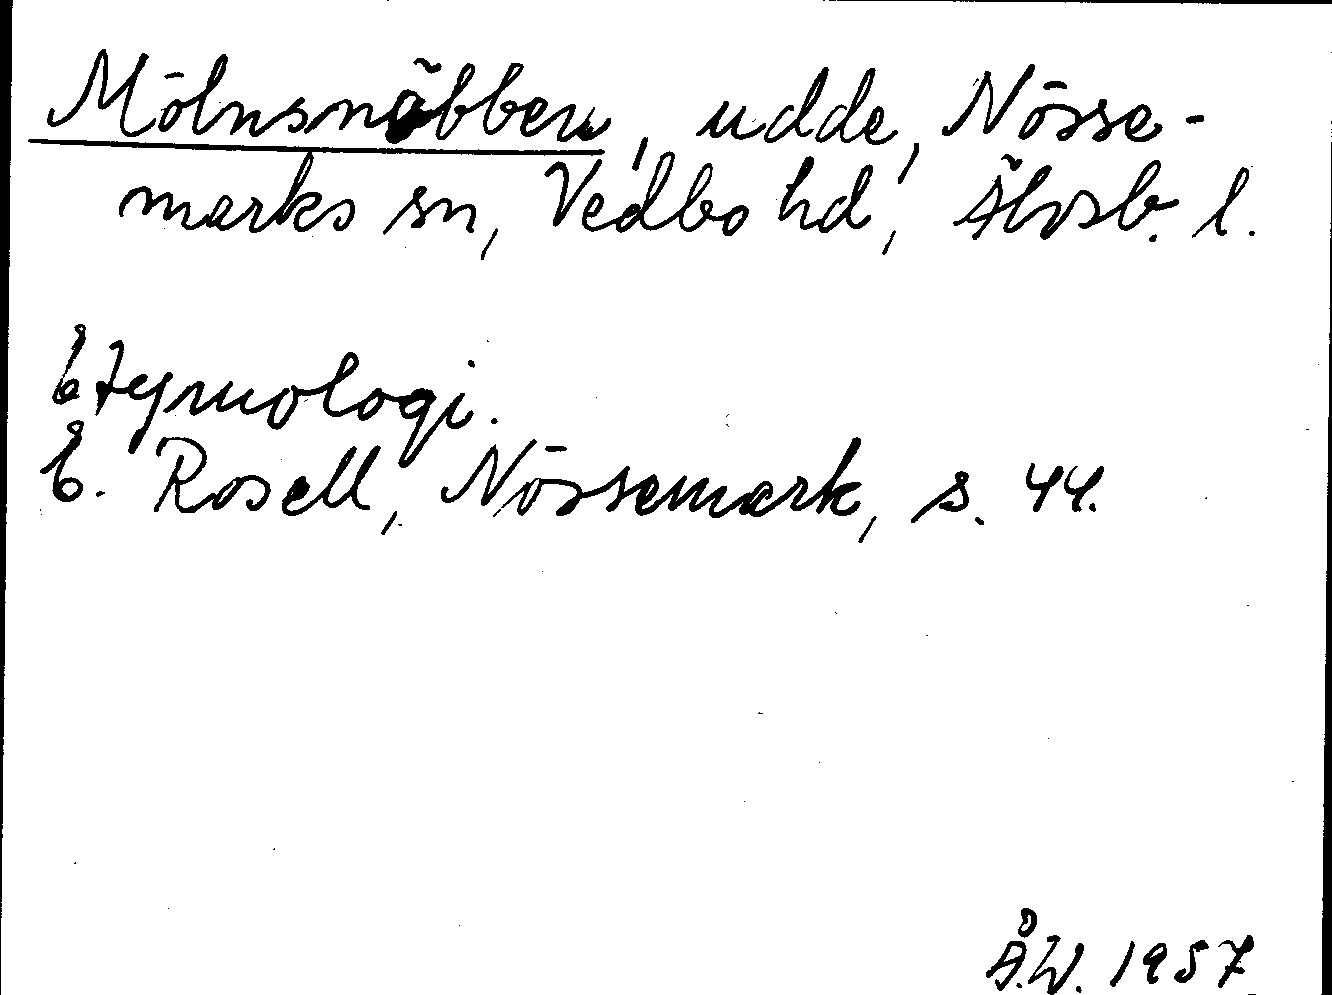 Mölnsnäbben, udde, Nösse-
marks sn, Vedbo hd, Älvsb. l.
Etymologi.
E. Rosell, Nössemark, s. 44.
Å.W. 1957